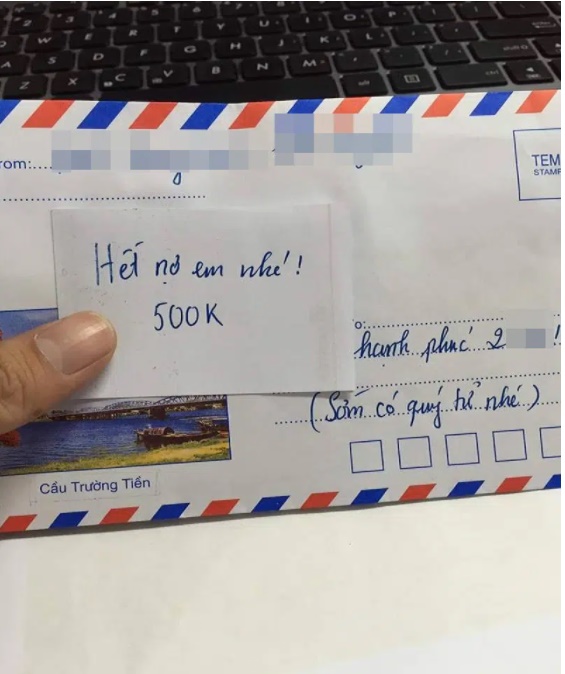 rom:
TEM
STAMP
Hết nợ em nhé!
500K
o:
hạnh phúc 2 !
(Sớm có quý tử nhé)
Cầu Trường Tiền